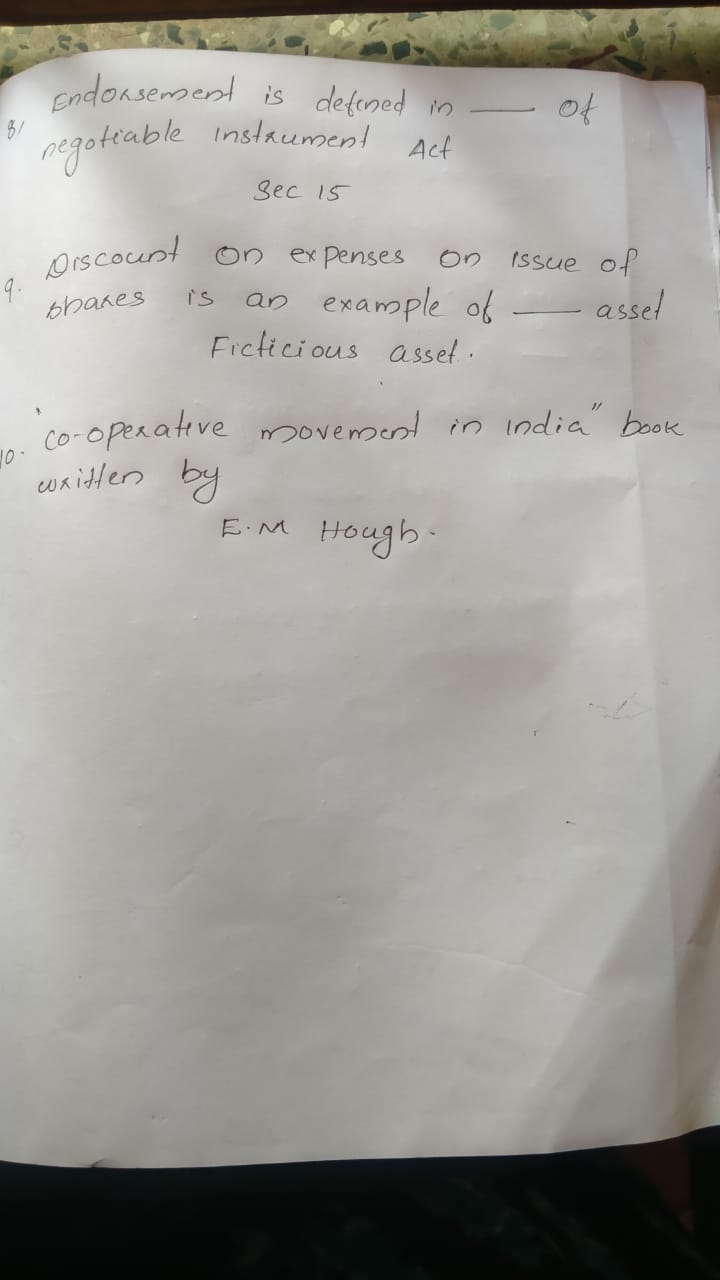 8/ Endorsement is defined in — of
negotiable instrument Act
Sec 15
9. Discount on expenses on issue of
shares is an example of — asset
Ficticious asset.
10. "co-operative movement in india" book
written by
E.M Hough.